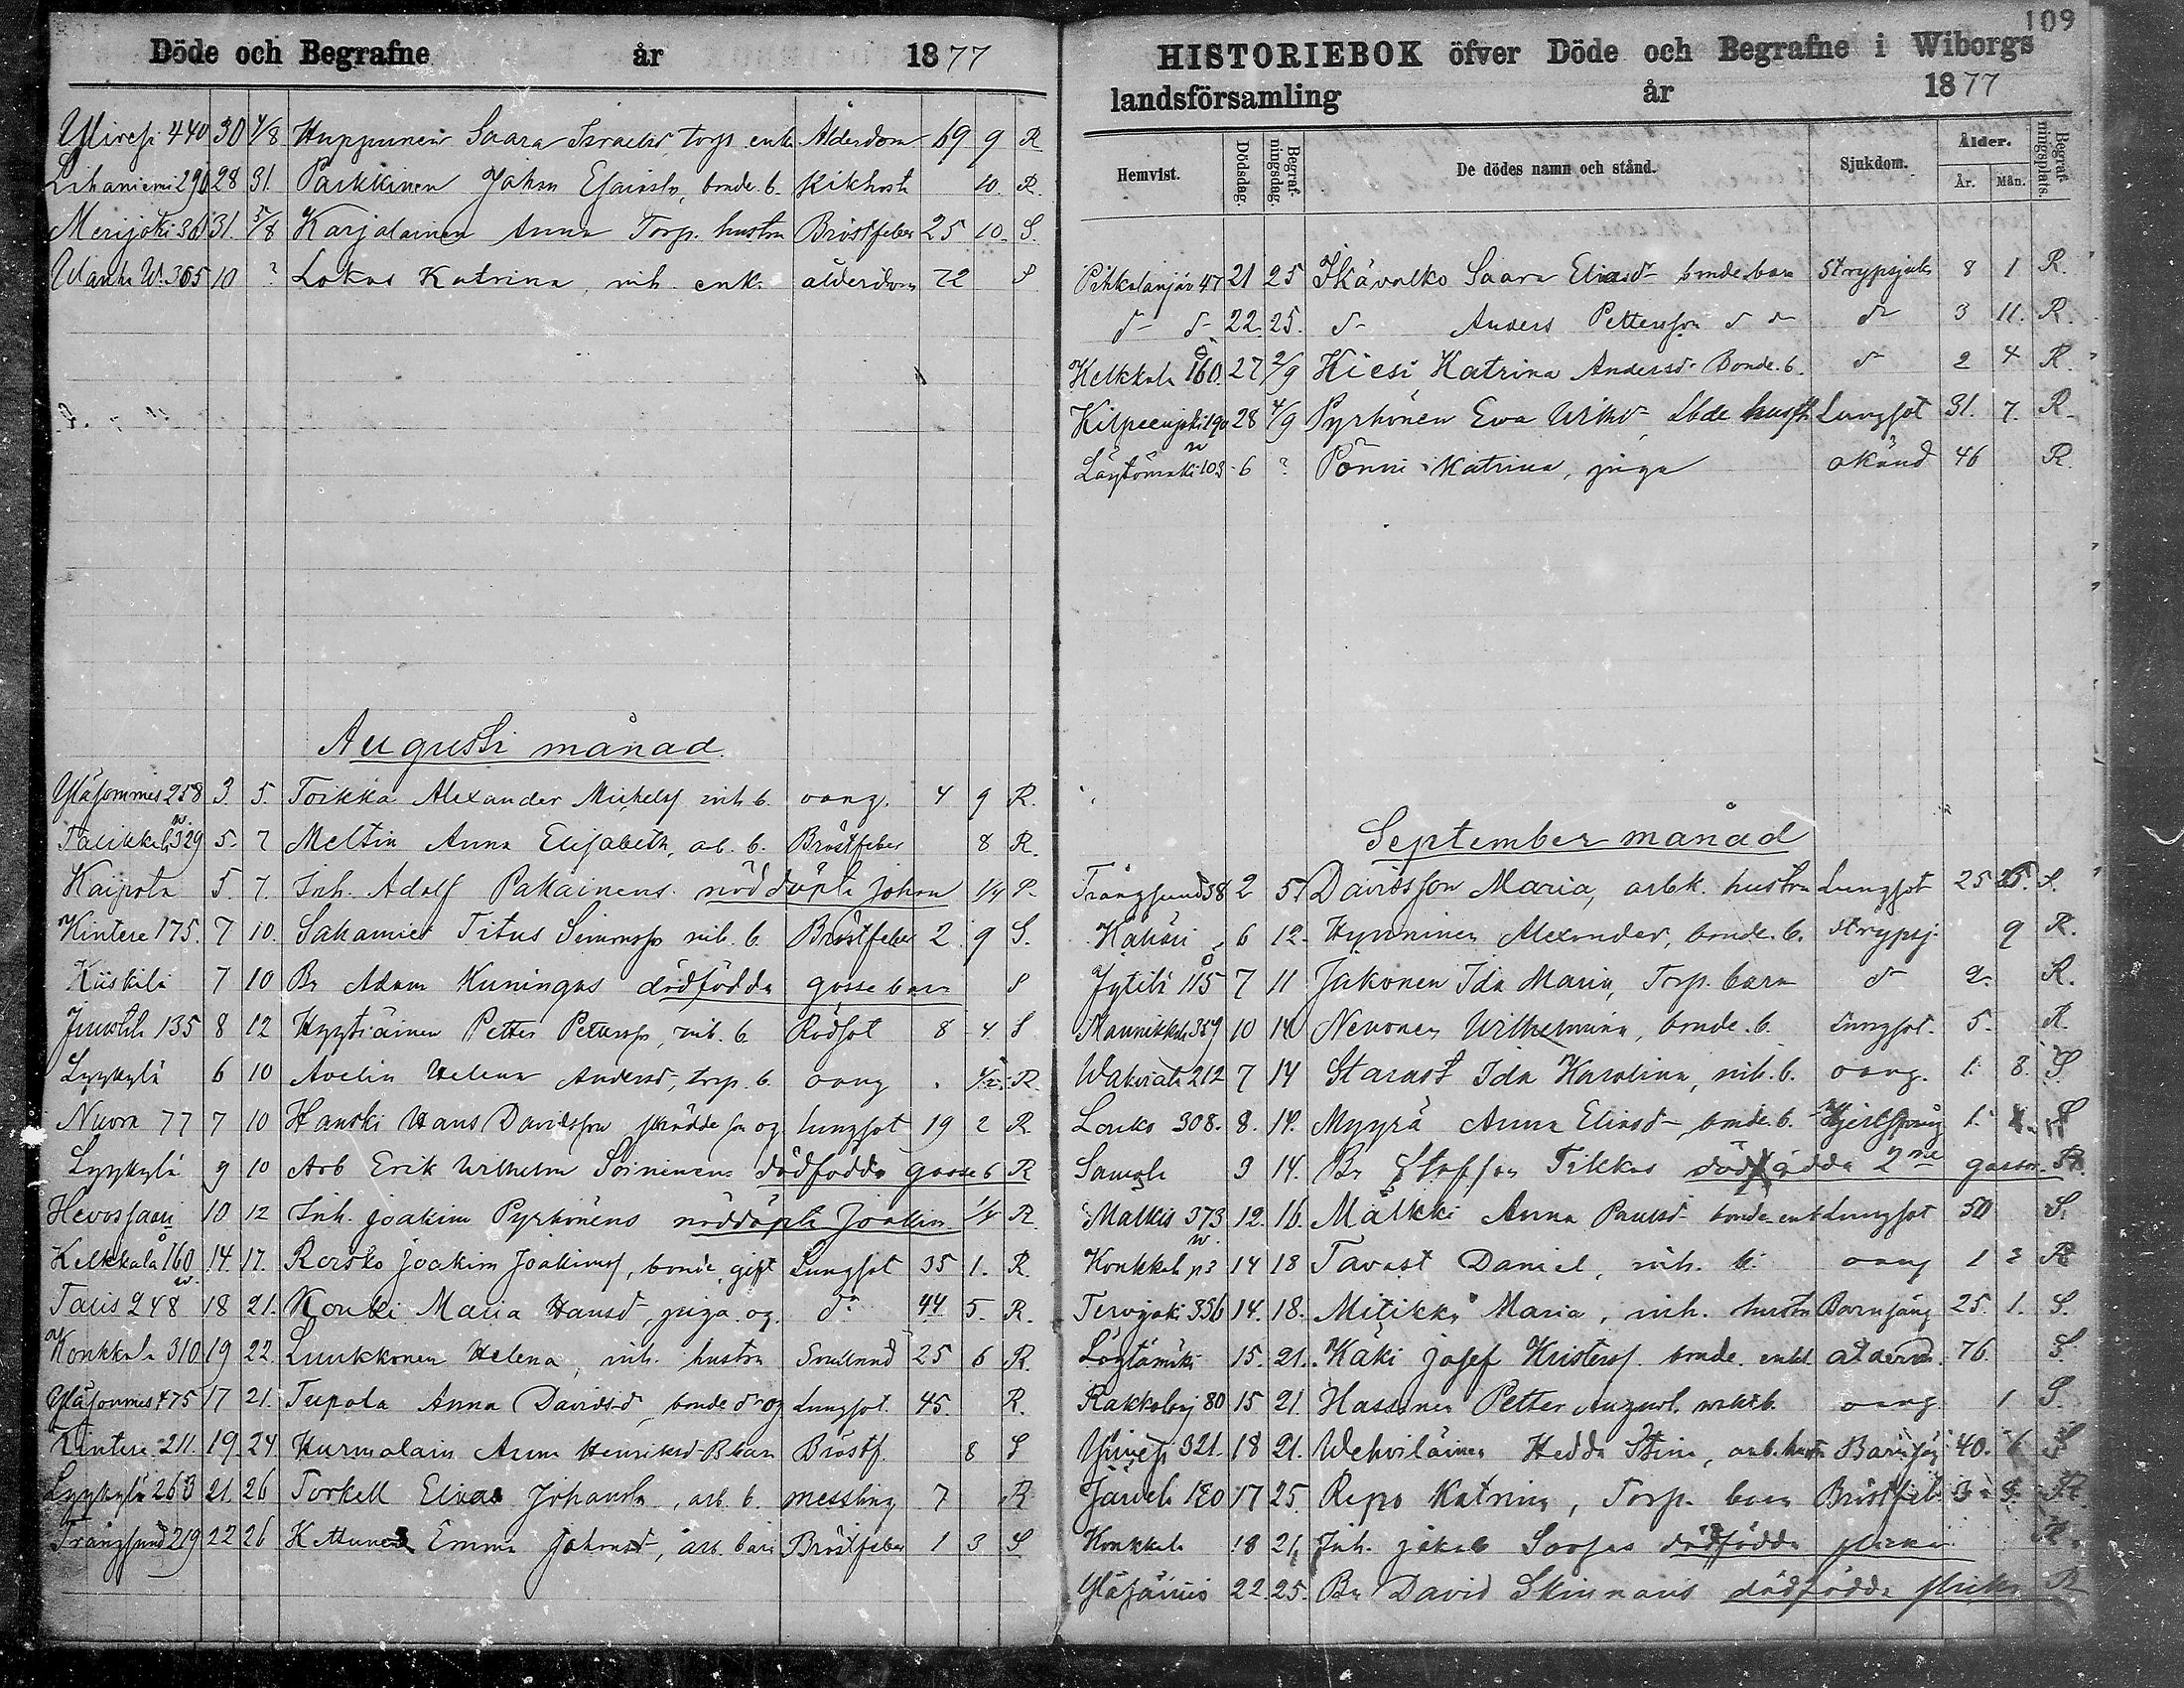 Döde och Begrafne år 1877
440 30 4/8 Huppunen Saara Israelsd. torp. enka Ålderdom 69 9 R
Lihaniemi 290 28 31. Parkkinen Johan bonde. b. Kikhosta 10. R.
Merijoki 361 31. 5/8 Karjalainen Anna Torp. hustru Bröstfeber 25 10. S.
365 10 ? Lokas Katrina, inh. enk. ålderdom 72 S
Augusti månad.
Yläsommee 258 3. 5. Toikka Alexander Michelss. inh. b. oang. 4 9 R.
Talikkala 329 5. 7 Meltin Anna Elisabeth, arb. b. Bröstfeber 8 R.
Kaipola 5. 7. Inh. Adolf Pakainens nöddöpte Johan 1/4 R.
Kintere 175. 7 10. Sakamies Titus Simonss. inh. b. Bröstfeber 2 9 S.
Kiiskilä 7 10 Br Adam Kuningas dödfödda gosse barn S
Juustila 135 8 12 Hyytiäinen Petter Petterss, inh. b. Rödsot 8 4 S
Lyykylä 6 10 Avelin Helena Andersd, torp. b. oang R.
Nuora 77 7 10 Hanski Hans Davidsson og lungsot 19 2 R.
Lyykylä 9 10 Arb Erik Wilhelm Soininens dödfödda gosse b R
Hevossaari 10 12 Inh. Joakim Pyrhönens nöddöpte Joakim 1/4 R.
Kelkkala 160 14. 17. Rorsko Joakim Joakimss, bonde, gift Lungsot 35 1. R.
Talis 248 18 21. Konki Maria Hansd, piga og. do 44 5. R.
Konkkala 310 19 22. Luukkonen Helena, inh. hustru 25 6 R.
Yläsommee 475 17 21. Tupola Anna Davidsd, bonde dr og Lungsot 45. R.
Kintere 211. 19 24 Hurmalain Anna Henriksd B. barn Bröstf. 8 S
Lyykylä 263 21. 26 Torkell Elias Johanss, arb. b. messling 7 R
Trångsund 219 22 26 Kettunen Emma Johansd, arb. barn Bröstfeber 1 3 S
109
HISTORIEBOK öfver Döde och Begrafne i Wiborgs
landsförsamling år 1877
Hemvist. Dödsdag. Begrafningsdag. De dödes namn och stånd. Sjukdom. Ålder. År. Mån. Begrafningsplats.
47 21 25 Ikävalko Saara Eliasd bonde barn Strypsjuk 8 1 R.
d d 22. 25. d Anders Pettersson d d d 3 11. R.
Kelkkala 160. 27 2/9 Hiesi Katrina Andersd Bonde. b. d 2 4 R.
Kilpeenjoki 190 28 4/9 Pyrhönen Ewa Lungsot 31. 7. R.
Läytömäki 103 6 ? Pönni Katrina, piga okänd 46 R.
September månad
Trångsund 38 2 5. Davidsson Maria, arbk. hustru Lungsot 25 S.
Kähäri 6 12. Hynninen Alexander, bonde. b. Strypsj. 9 R.
Jytilä 115 7 11 Jäkonen Ida Maria, Torp. barn d 2 R.
Mannikkala 359 10 14 Nevonen Wilhelmina, bonde. b. Lungsot. 5. R.
Wakiala 212 7 14 Starast Ida Karolina, inh. b. oang. 1. 8. S.
Louko 308. 8. 14. Myyrä Anna Eliasd, bonde. b. 1. S
Samola 9 14. Br Staffan Tikkas dödfödda 2ne gossar R.
Mälkis 373 12. 16. Mälkki Anna Paulsd bonde enk Lungsot 50 S.
Konkkala 14 18 Tavast Daniel, inh. b. oang 1 2 R
Tervajoki 356 14. 18. Mitikka Maria, inh. hustru Barnsäng 25. 1. S.
Läytämäki 15. 21. Käki Josef Kristerss. bonde. enkl ålderd 76. S.
80 15 21. Hassinen Petter oang 1 S.
321. 18 21. Wehviläinen Hedda Stina, arb. hustr 40. 6 S
120 17 25. Repo Katrina, Torp. barn Bröstfeb. R
Konkkala 18 21 Inh. Jakob Sorsas dödfödda flicka R.
22. 25. Br David Skinnaris dödfödda flicka R